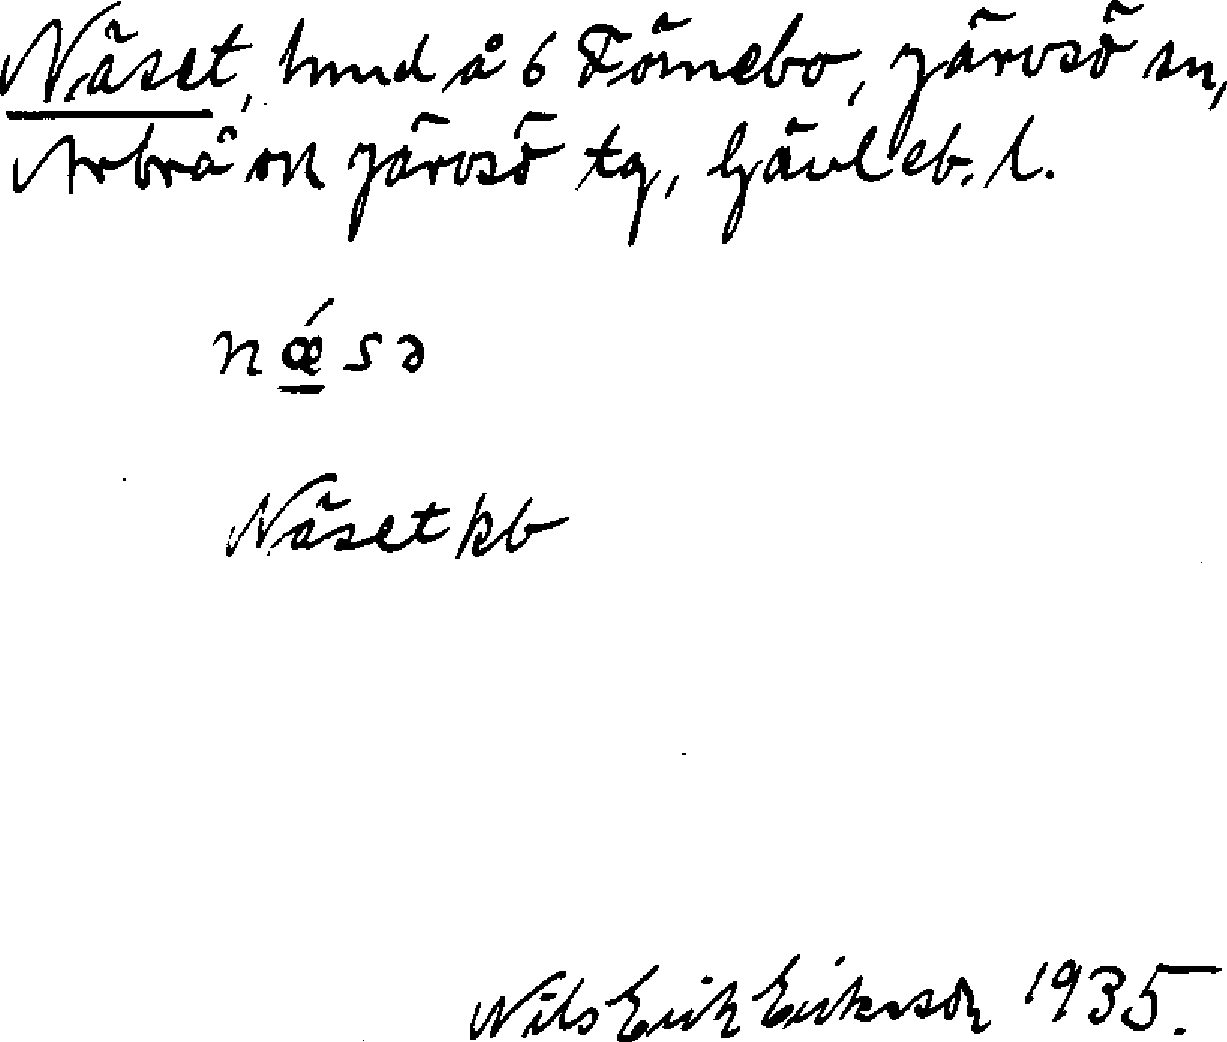 Näset, hmd å 6 Förnebo, Järvsö sn,
Arbrå o Järvsö tg, Gävleb. l.
næ´sə
Näset kb
Nils Erik Eriksson 1935.